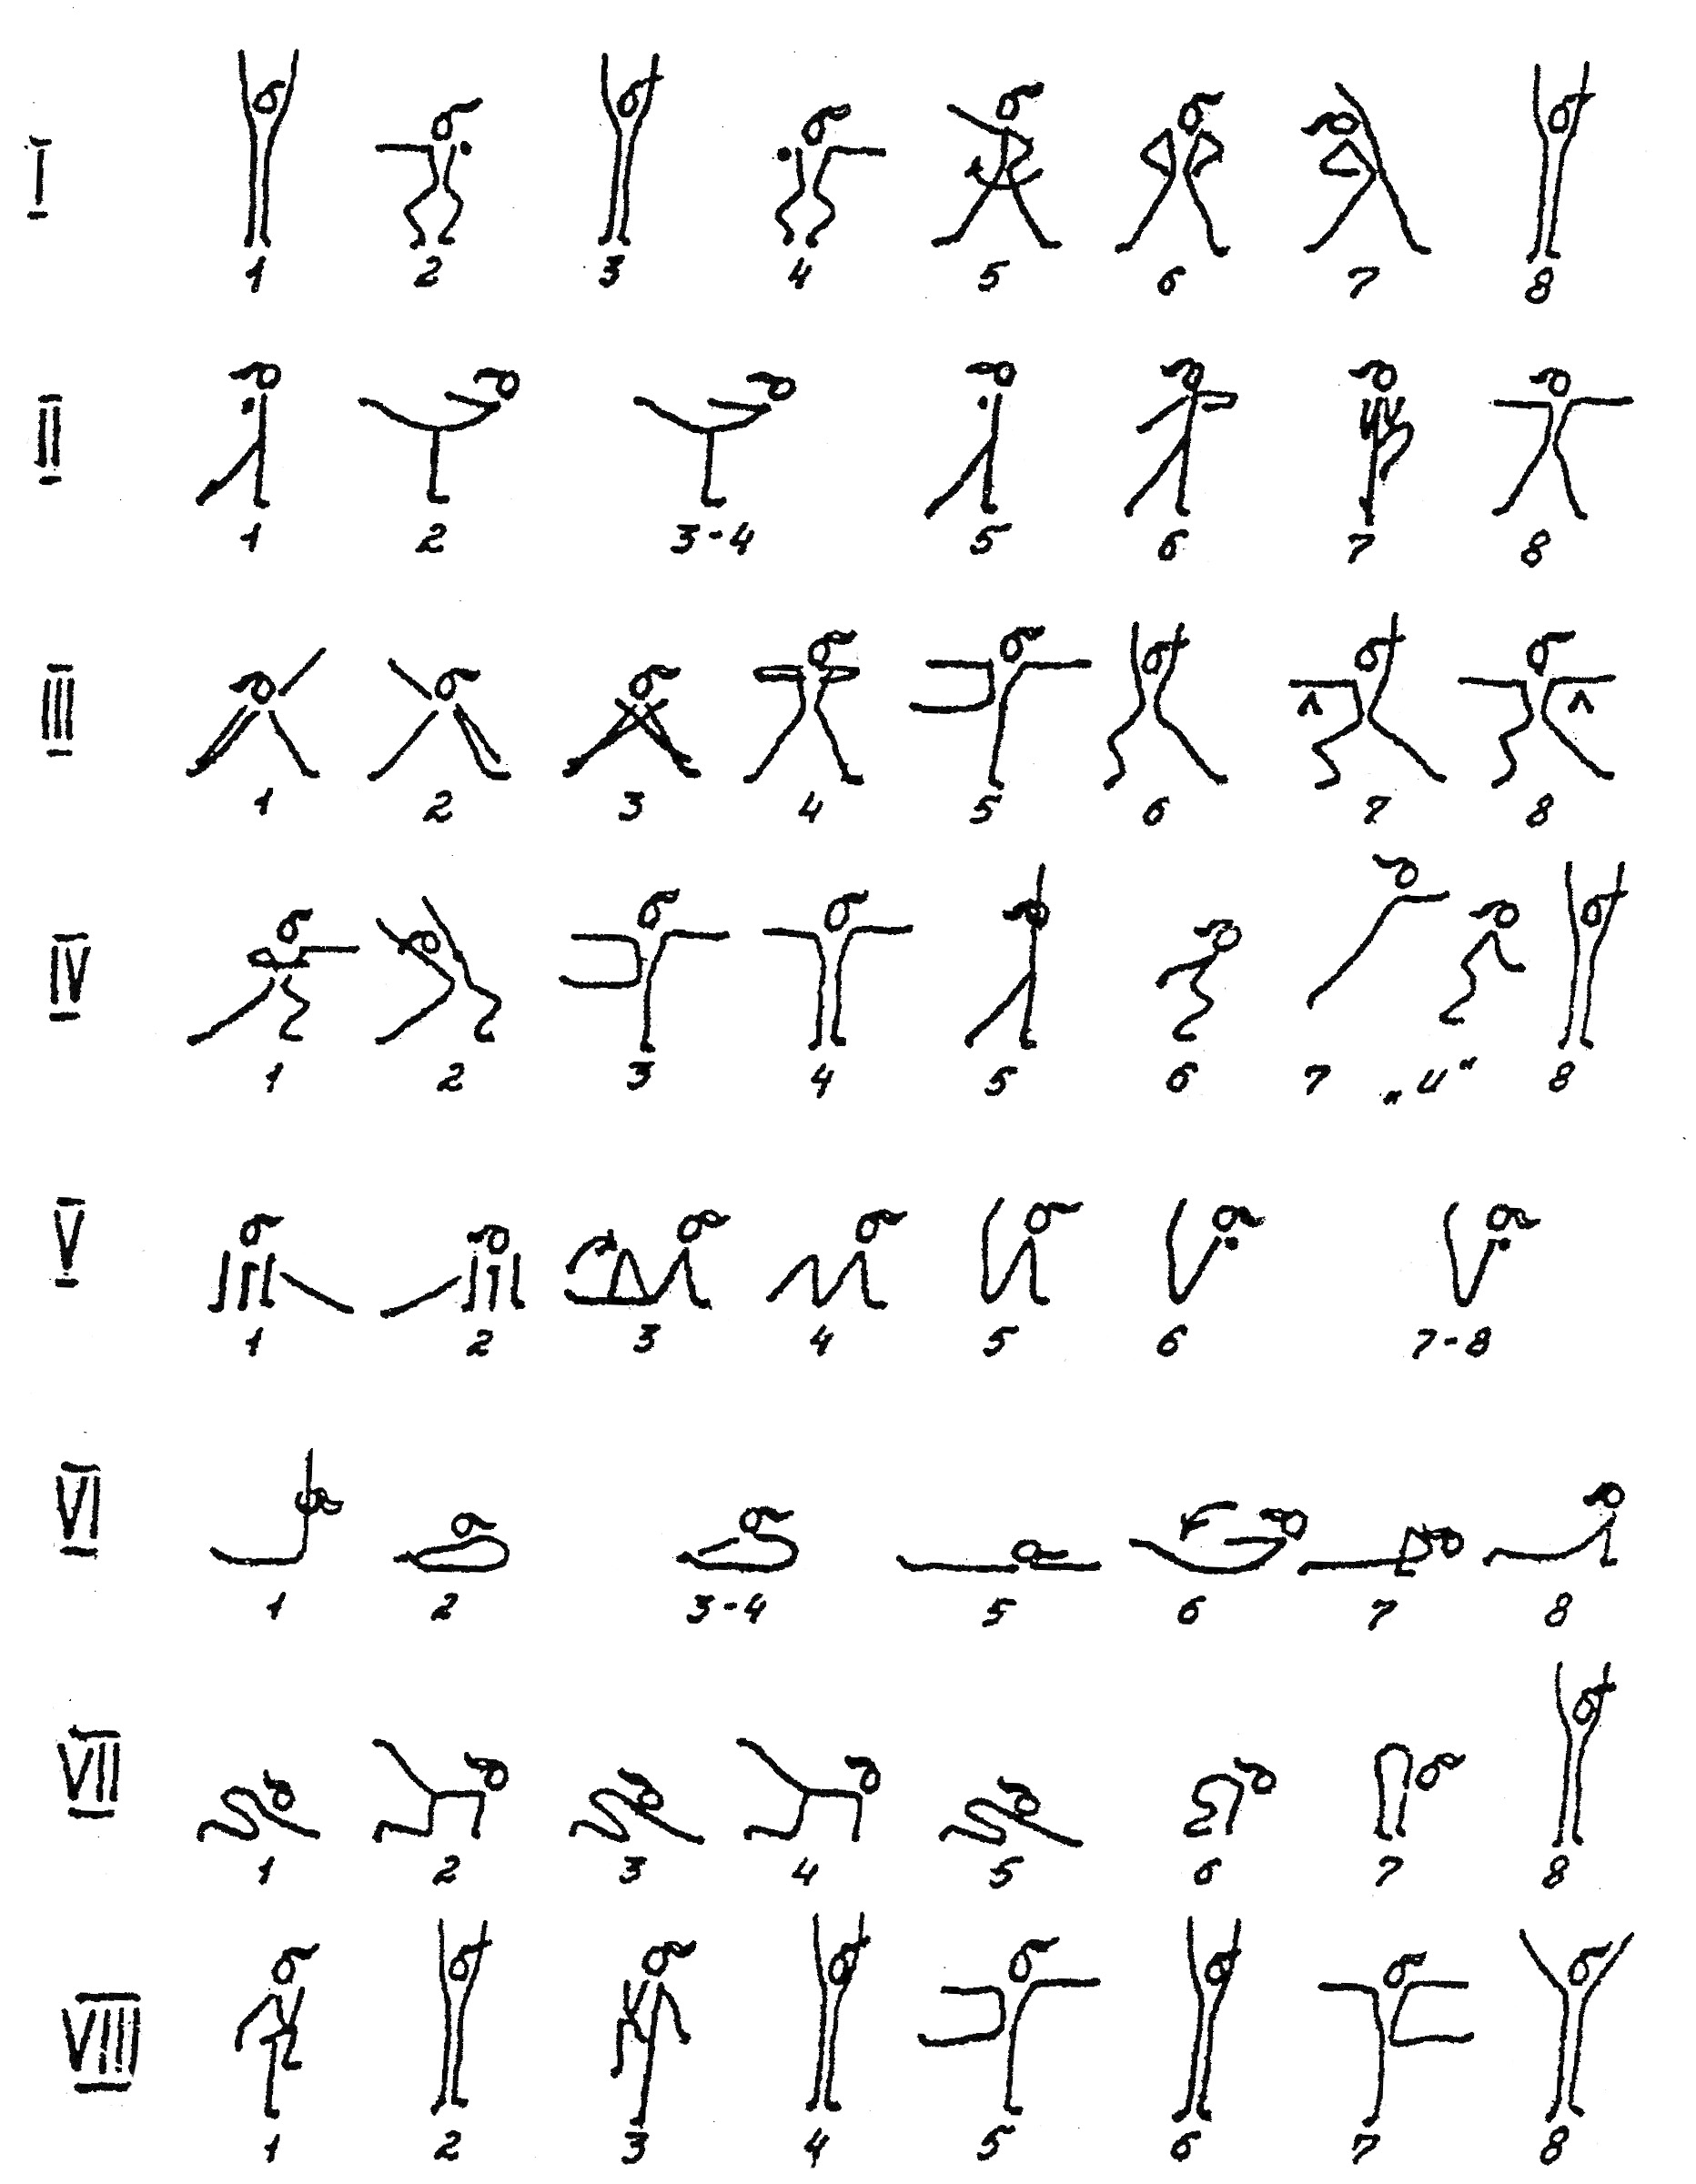 I
1 2 3 4 5 6 7 8
II
1 2 3-4 5 6 7 8
III
1 2 3 4 5 6 7 8
IV
1 2 3 4 5 6 7 „и“ 8
V
1 2 3 4 5 6 7-8
VI
1 2 3-4 5 6 7 8
VII
1 2 3 4 5 6 7 8
VIII
1 2 3 4 5 6 7 8